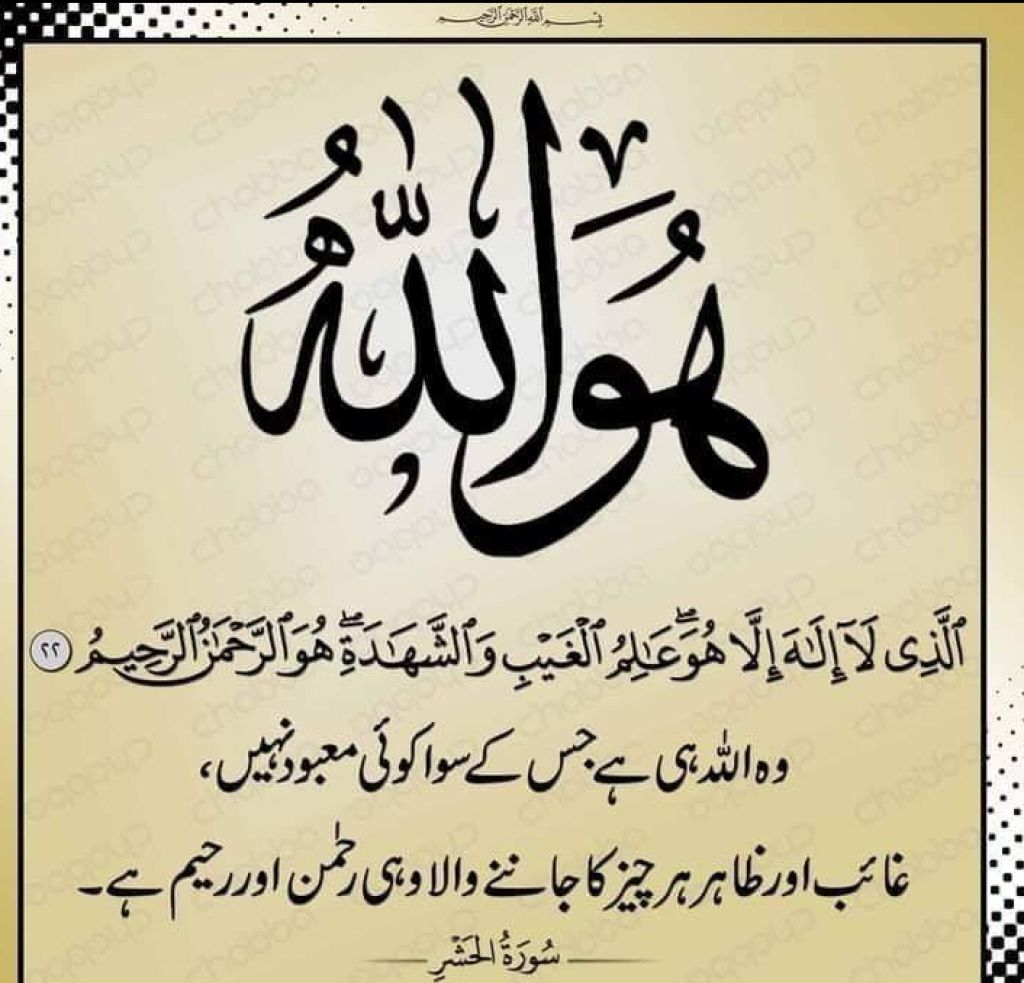 بسم الله الرحمن الرحيم
هُوَ اللّٰهُ
ٱلَّذِى لَآ إِلَـٰهَ إِلَّا هُوَۖ عَـٰلِمُ ٱلْغَيْبِ وَٱلشَّهَـٰدَةِۖ هُوَ ٱلرَّحْمَـٰنُ ٱلرَّحِيمُ ٢٢
وہ اللہ ہی ہے جس کے سوا کوئی معبود نہیں،
غائب اور ظاہر ہر چیز کا جاننے والا وہی رحمٰن اور رحیم ہے۔
سُورَةُ الحَشْرِ
chabba